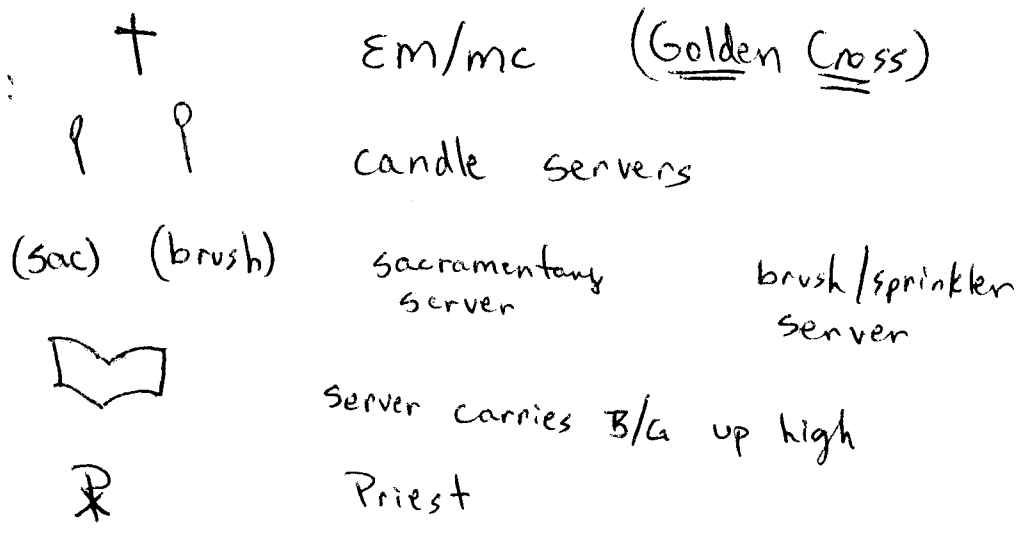 EM/MC (Golden Cross)
candle servers
(sac) (brush) sacramentary server brush/sprinkler server
server carries B/G up high
Priest